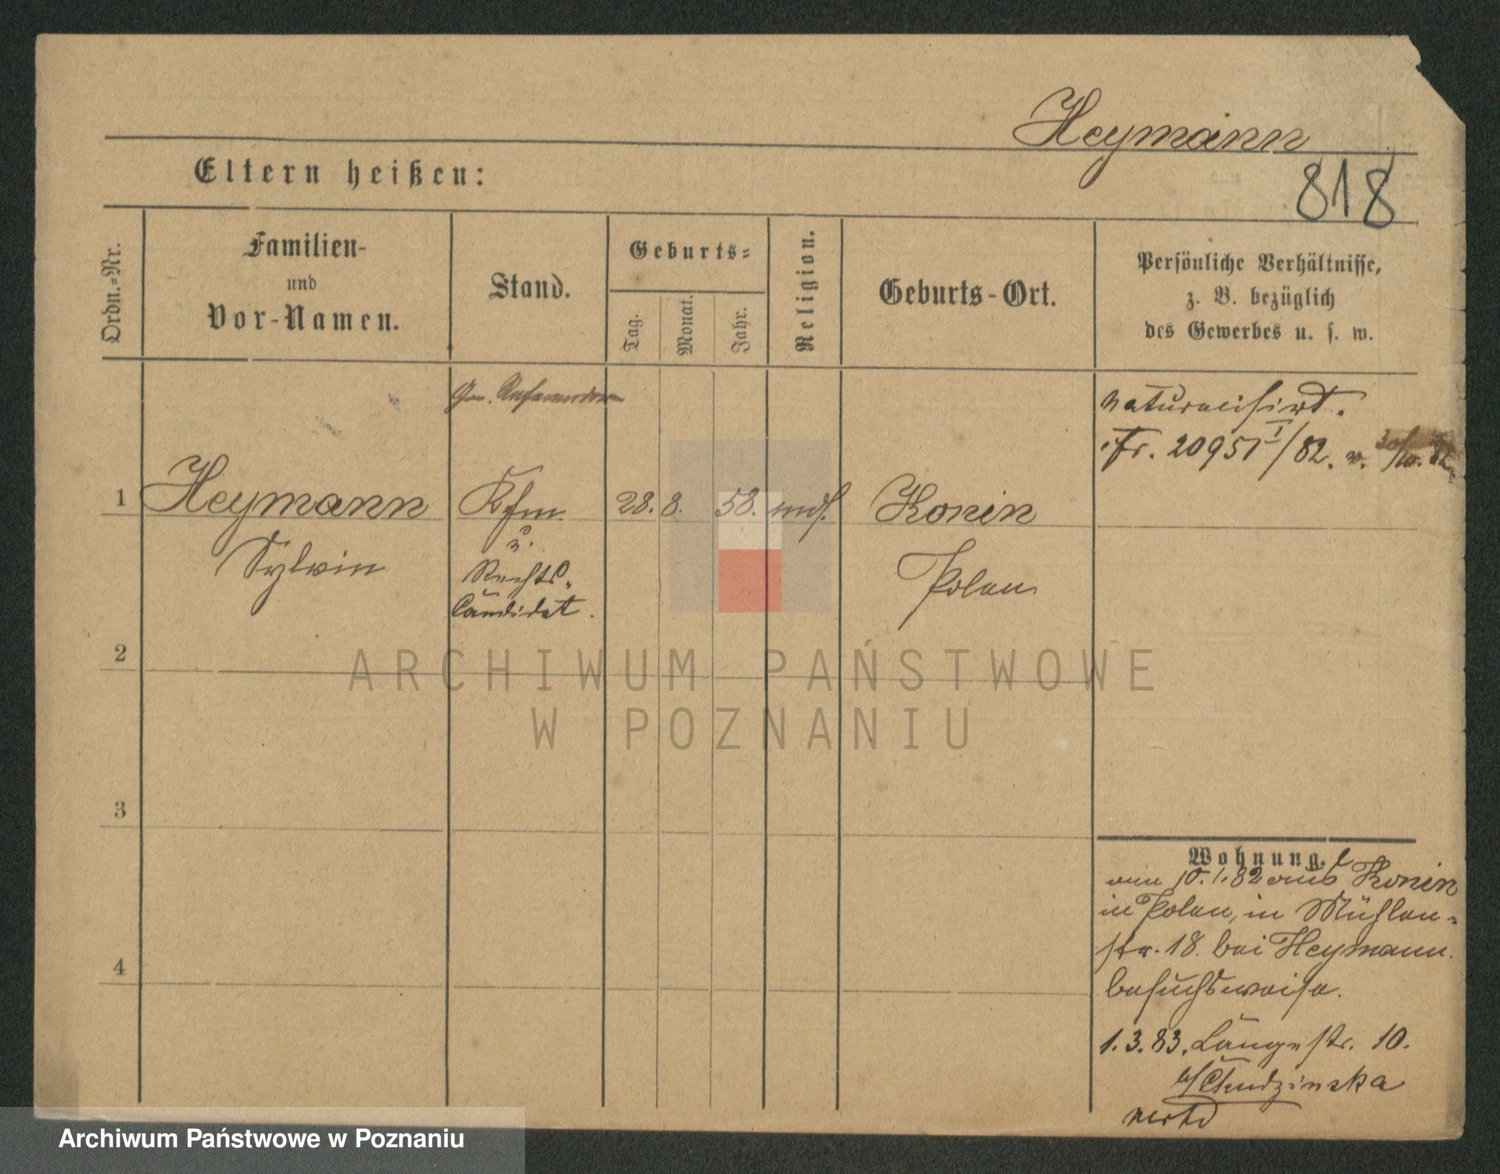 Heymann
818
Eltern heißen:
Ordn.-Nr.
Familien-
und
Vor-Namen.
Stand.
Geburts-
Tag.
Monat.
Jahr.
Religion.
Geburts-Ort.
Persönliche Verhältnisse,
z. B. bezüglich
des Gewerbes u. s. w.
naturalisirt.
Fr. 20951 I/82. v.
1 Heymann Kfm 28. 8. 58. Konin
Sylvin u. Polen
Rechts-
Candidat.
2
3
4
ARCHIWUM PAŃSTWOWE
W POZNANIU
Wohnung.
10.1.82 aus Konin
in Polen, in Mühlen-
str. 18. bei Heymann
besuchsweise.
1.3.83. Langestr. 10.
b/Chudzinska
Archiwum Państwowe w Poznaniu